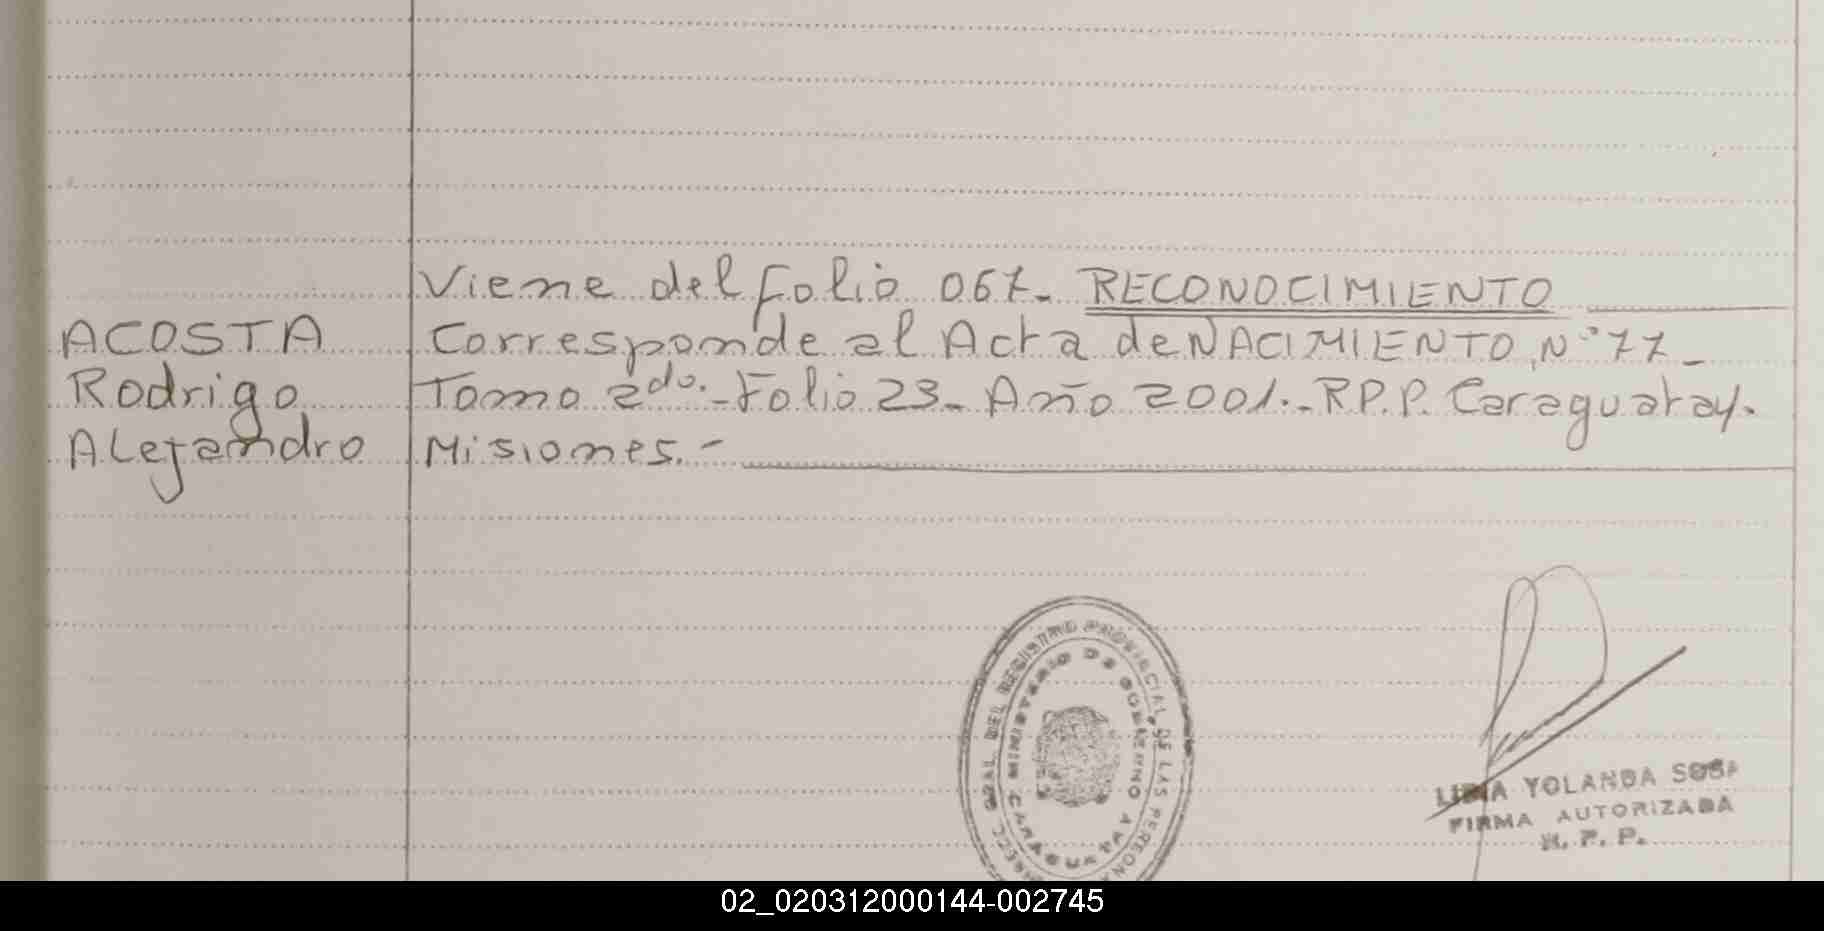 Viene del Folio 067- RECONOCIMIENTO
ACOSTA
Rodrigo
Alejandro
Corresponde al Acta de NACIMIENTO, N° 77-
Tomo 2do.-Folio 23- Año 2001.-R.P.P. Caraguatay.
Misiones.-
GRAL DEL REGISTRO PROVINCIAL DE LAS PERSONAS
MINISTERIO DE GOBIERNO
CARAGUATAY
YOLANDA SOSA
FIRMA AUTORIZADA
R. P. P.
02_020312000144-002745